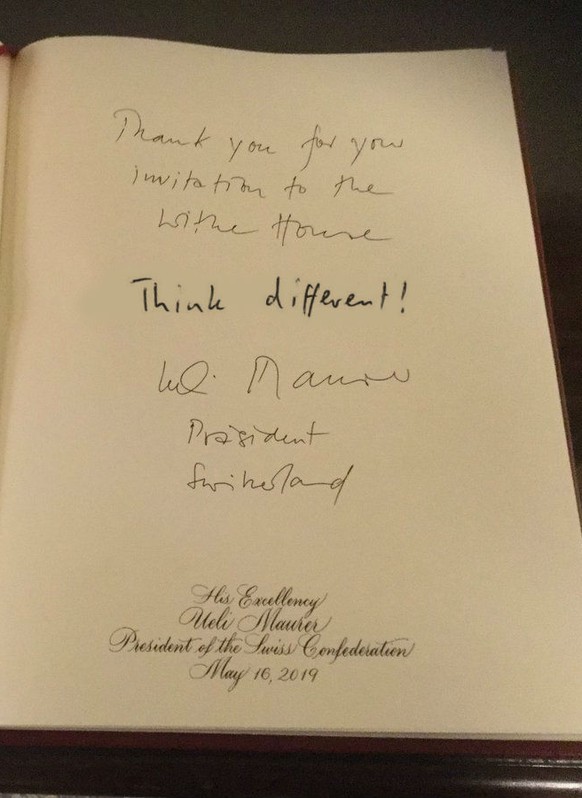 Thank you for your
invitation to the
Withe House
Think different!
Ueli Maurer
Präsident
Switzerland
His Excellency
Ueli Maurer
President of the Swiss Confederation
May 16, 2019